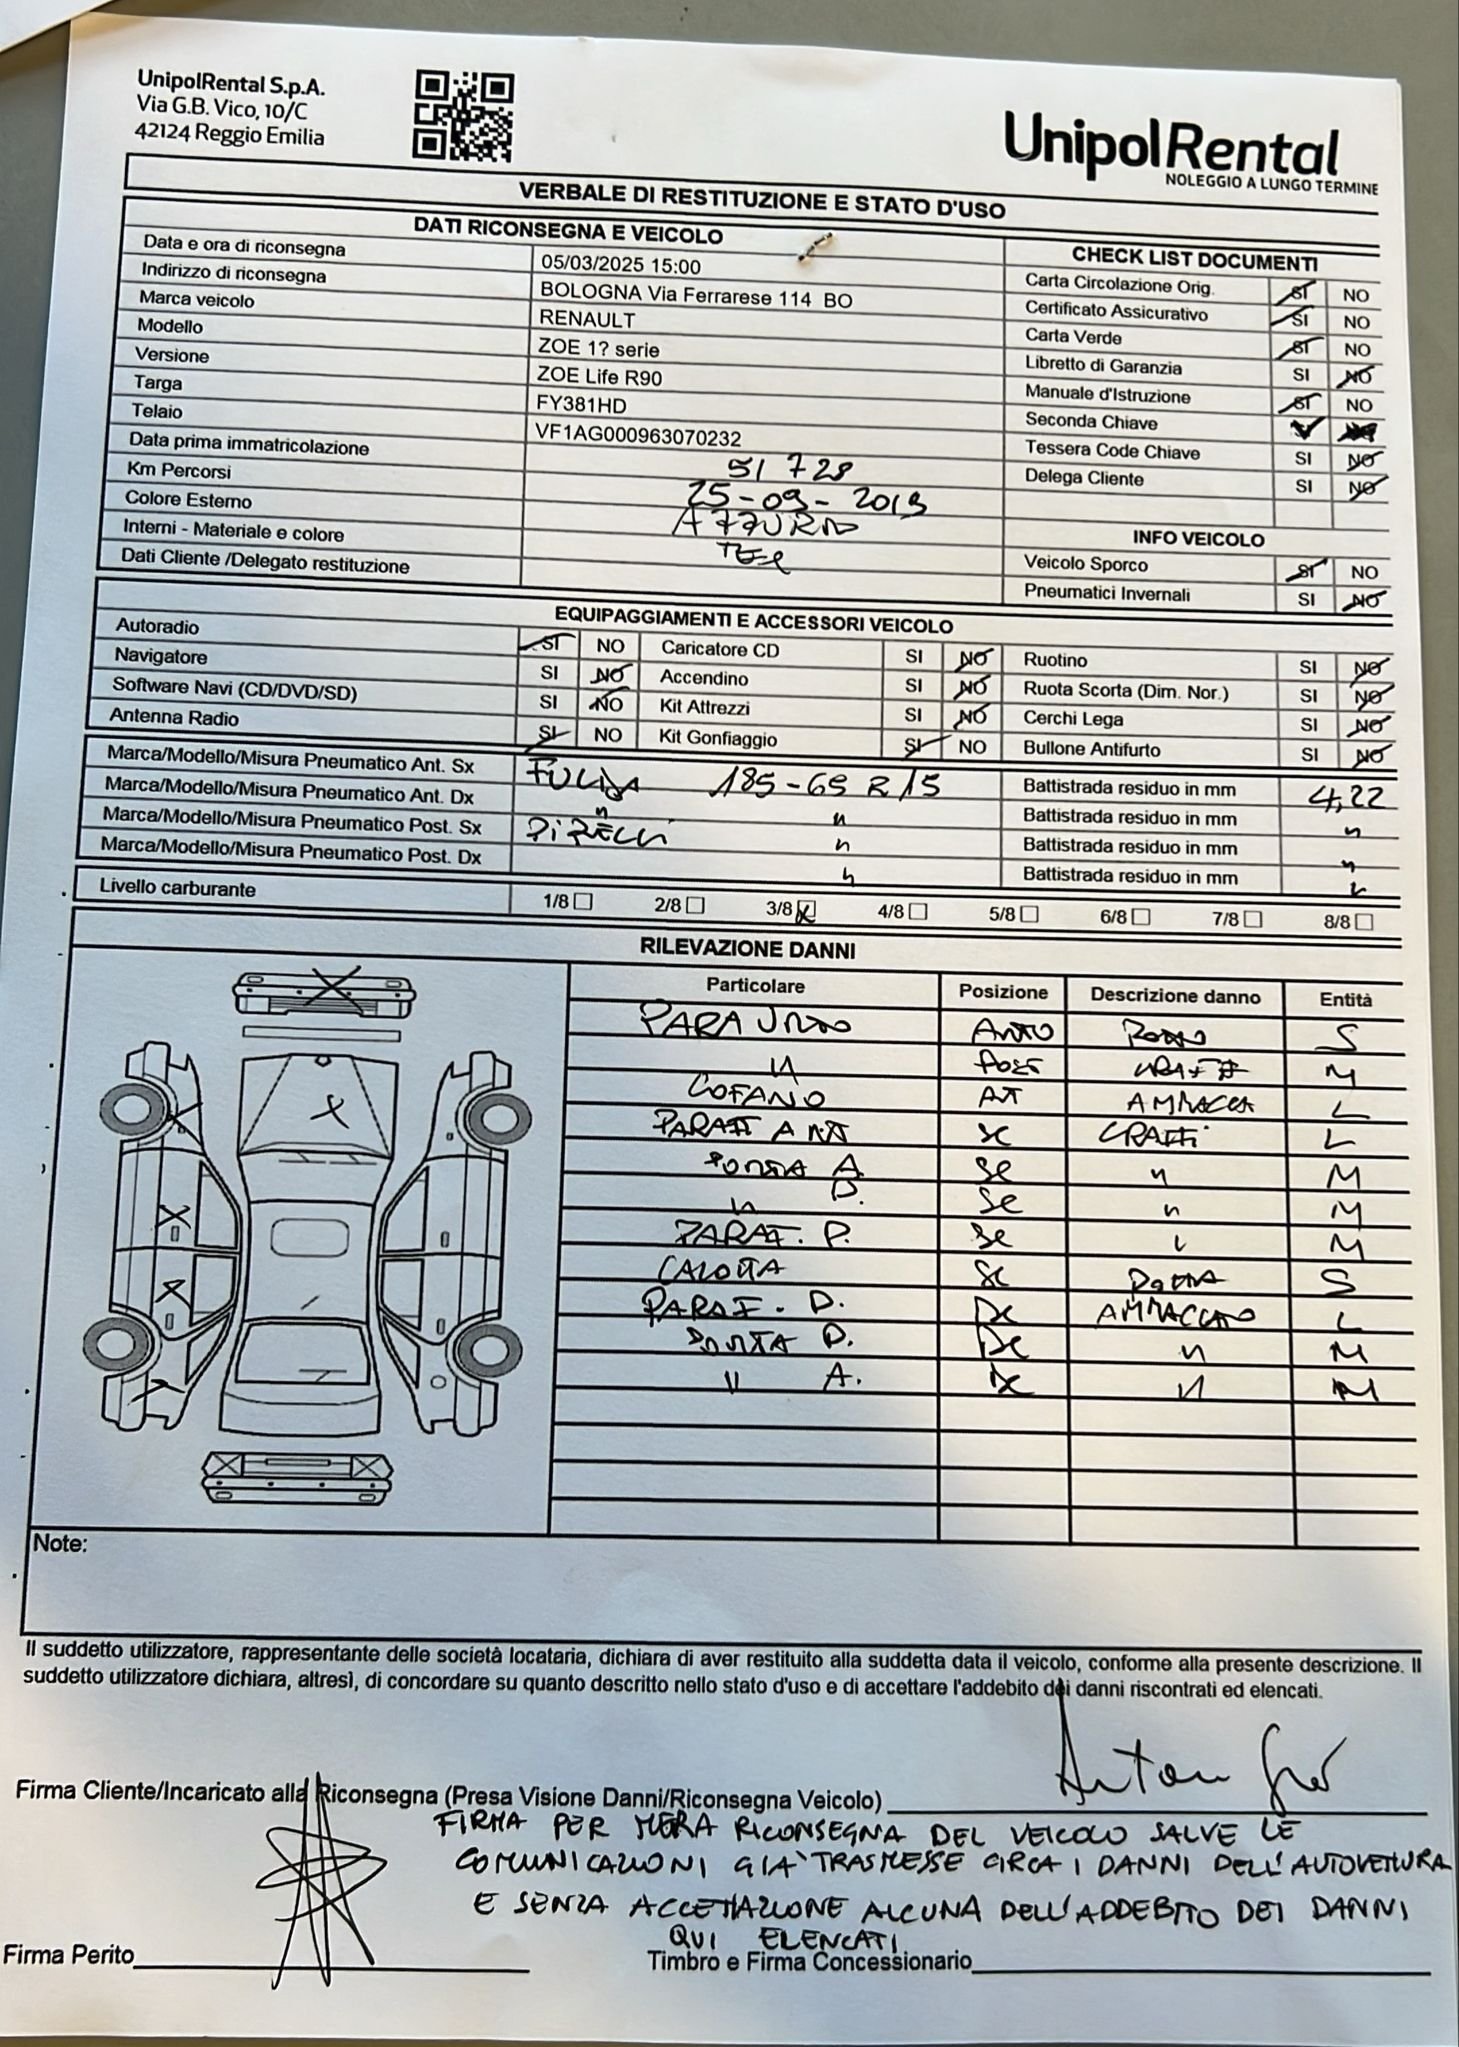 UnipolRental S.p.A.
Via G.B. Vico, 10/C
42124 Reggio Emilia
UnipolRental
NOLEGGIO A LUNGO TERMINE
VERBALE DI RESTITUZIONE E STATO D'USO
DATI RICONSEGNA E VEICOLO
Data e ora di riconsegna 05/03/2025 15:00
Indirizzo di riconsegna BOLOGNA Via Ferrarese 114 BO
Marca veicolo RENAULT
Modello ZOE 1? serie
Versione ZOE Life R90
Targa FY381HD
Telaio VF1AG000963070232
Data prima immatricolazione 51 728
Km Percorsi 25-09-2019
Colore Esterno AZZURRO
Interni - Materiale e colore
Dati Cliente /Delegato restituzione
CHECK LIST DOCUMENTI
Carta Circolazione Orig. SI NO
Certificato Assicurativo SI NO
Carta Verde SI NO
Libretto di Garanzia SI NO
Manuale d'Istruzione SI NO
Seconda Chiave
Tessera Code Chiave SI NO
Delega Cliente SI NO
INFO VEICOLO
Veicolo Sporco SI NO
Pneumatici Invernali SI NO
EQUIPAGGIAMENTI E ACCESSORI VEICOLO
Autoradio SI NO Caricatore CD SI NO Ruotino SI NO
Navigatore SI NO Accendino SI NO Ruota Scorta (Dim. Nor.) SI NO
Software Navi (CD/DVD/SD) SI NO Kit Attrezzi SI NO Cerchi Lega SI NO
Antenna Radio SI NO Kit Gonfiaggio SI NO Bullone Antifurto SI NO
Marca/Modello/Misura Pneumatico Ant. Sx FULDA 185-65 R15 Battistrada residuo in mm 4,22
Marca/Modello/Misura Pneumatico Ant. Dx " " Battistrada residuo in mm "
Marca/Modello/Misura Pneumatico Post. Sx PIRELLI " Battistrada residuo in mm "
Marca/Modello/Misura Pneumatico Post. Dx " Battistrada residuo in mm "
Livello carburante 1/8 2/8 3/8 4/8 5/8 6/8 7/8 8/8
RILEVAZIONE DANNI
Particolare Posizione Descrizione danno Entità
PARAURTO S
" POST GRAFFI M
COFANO AMMACCA L
PARAF ANT SX GRAFFI L
PORTA A. SX " M
" P. SX " M
PARAF. P. SX " M
CALOTTA SX S
PARAF. P. DX AMMACCATO L
PORTA P. DX " M
" A. DX " M
Note:
Il suddetto utilizzatore, rappresentante delle società locataria, dichiara di aver restituito alla suddetta data il veicolo, conforme alla presente descrizione. Il
suddetto utilizzatore dichiara, altresì, di concordare su quanto descritto nello stato d'uso e di accettare l'addebito dei danni riscontrati ed elencati.
Firma Cliente/Incaricato alla Riconsegna (Presa Visione Danni/Riconsegna Veicolo)
FIRMA PER MERA RICONSEGNA DEL VEICOLO SALVE LE
COMUNICAZIONI GIA' TRASMESSE CIRCA I DANNI DELL'AUTOVETTURA
E SENZA ACCETTAZIONE ALCUNA DELL'ADDEBITO DEI DANNI
QUI ELENCATI
Firma Perito Timbro e Firma Concessionario